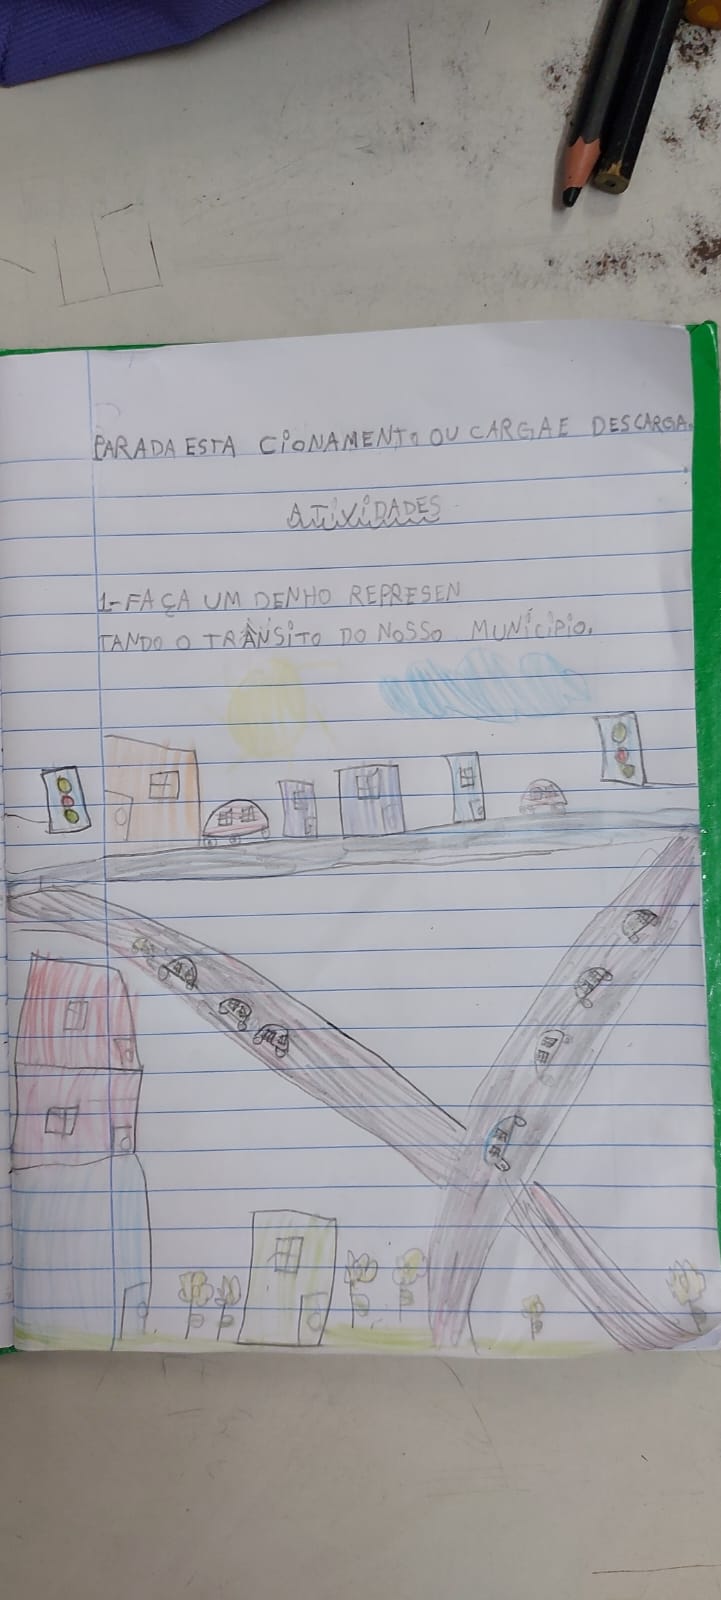 PARADA ESTA CIONAMENTO OU CARGA E DESCARGA.
ATIVIDADES
1-FAÇA UM DENHO REPRESEN
TANDO O TRÂNSITO DO NOSSO MUNÍCIPIO.